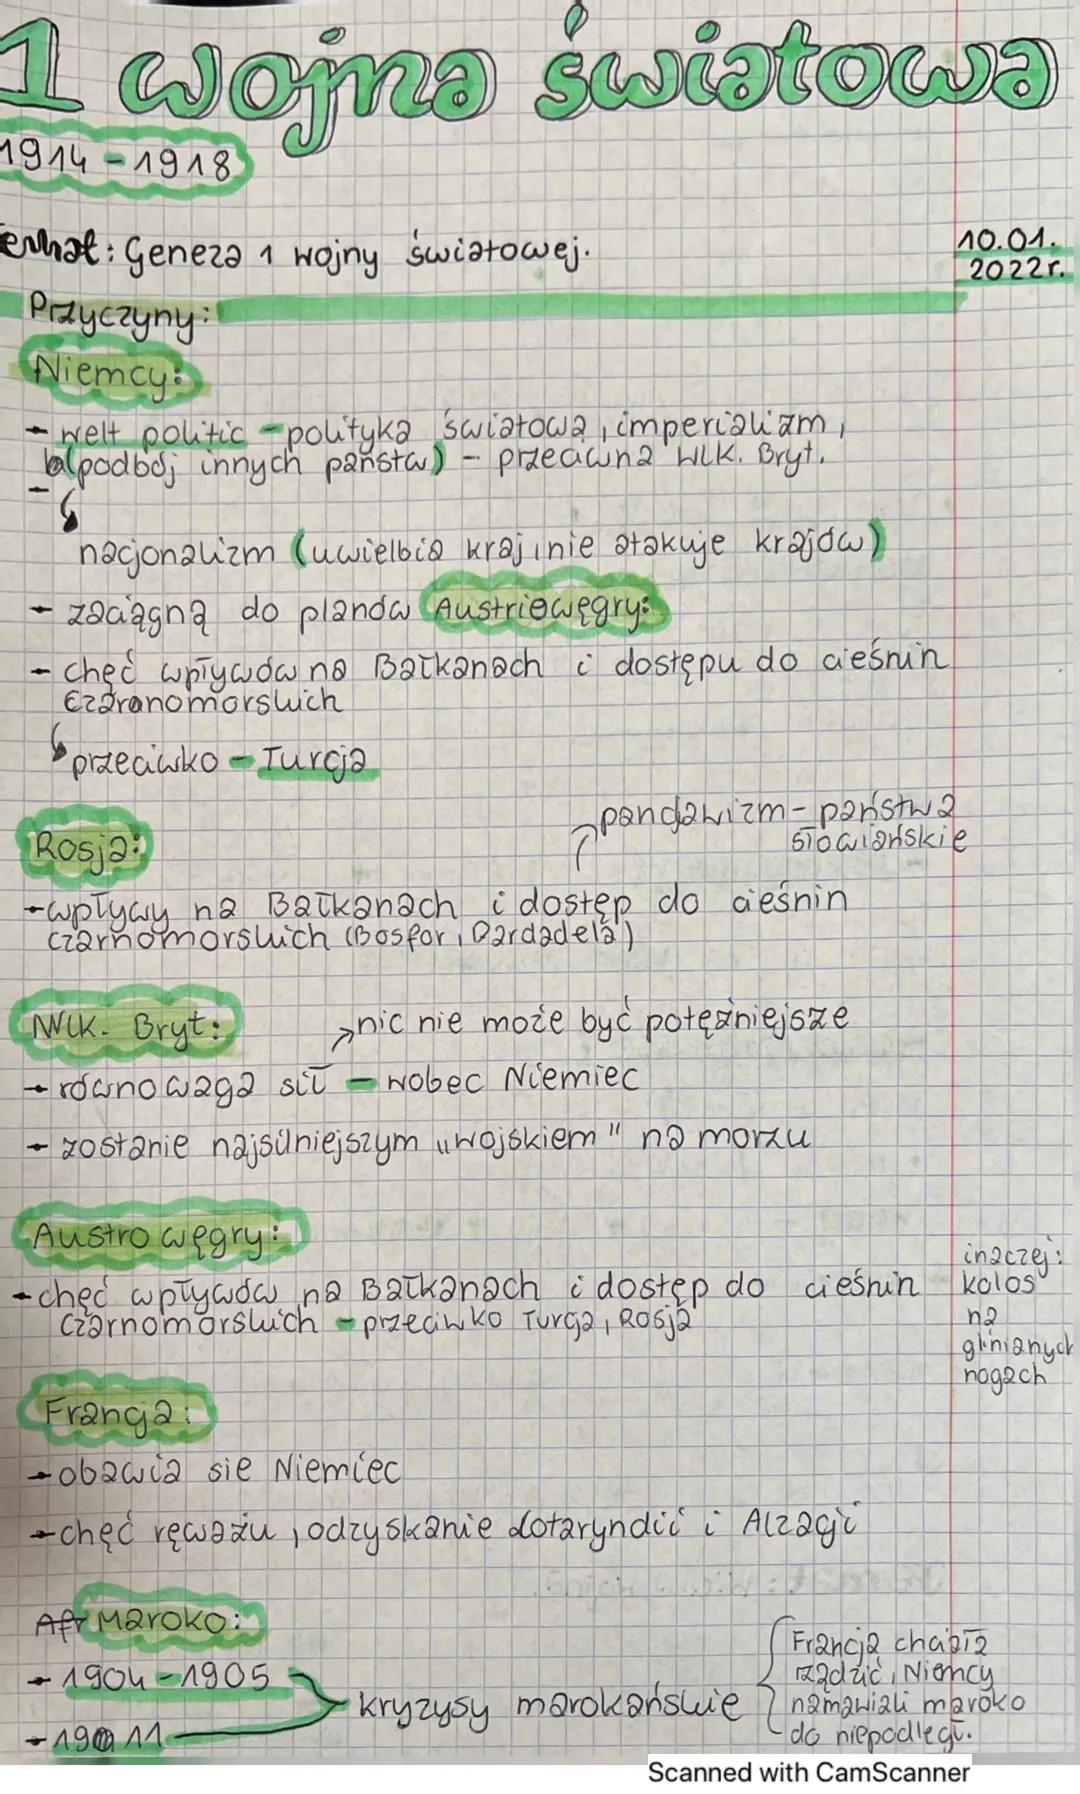 1 wojna światowa
1914 - 1918
emat: Geneza 1 wojny światowej.
10.01.
2022r.
Przyczyny:
Niemcy:
- welt politic - polityka światowa, imperializm,
(podbój innych państw) - przeciwna Wlk. Bryt.
-
nacjonalizm (uwielbia kraj, nie atakuje krajów)
- zaciągną do planów Austriowęgry:
- chęć wpływów na Bałkanach i dostępu do cieśnin
czaranomorskich
przeciwko - Turcja
pandawizm - państwa
słowiańskie
Rosja:
- wpływy na Bałkanach i dostęp do cieśnin
czarnomorskich (Bosfor, Dardadela)
Wlk. Bryt:
nic nie może być potężniejsze
- równowaga sił - wobec Niemiec
- zostanie najsilniejszym „wojskiem" na morzu
Austro węgry:
- chęć wpływów na Bałkanach i dostęp do cieśnin
czarnomorskich - przeciwko Turcja, Rosja
inaczej:
kolos
na
glinianych
nogach
Francja:
- obawia sie Niemiec
- chęć rewanżu, odzyskanie Lotaryndii i Alzacji
Afr Maroko:
- 1904 - 1905
- 1911
kryzysy marokańskie
Francja chciała
rządzić, Niemcy
namawiali maroko
do niepodległ.
Scanned with CamScanner